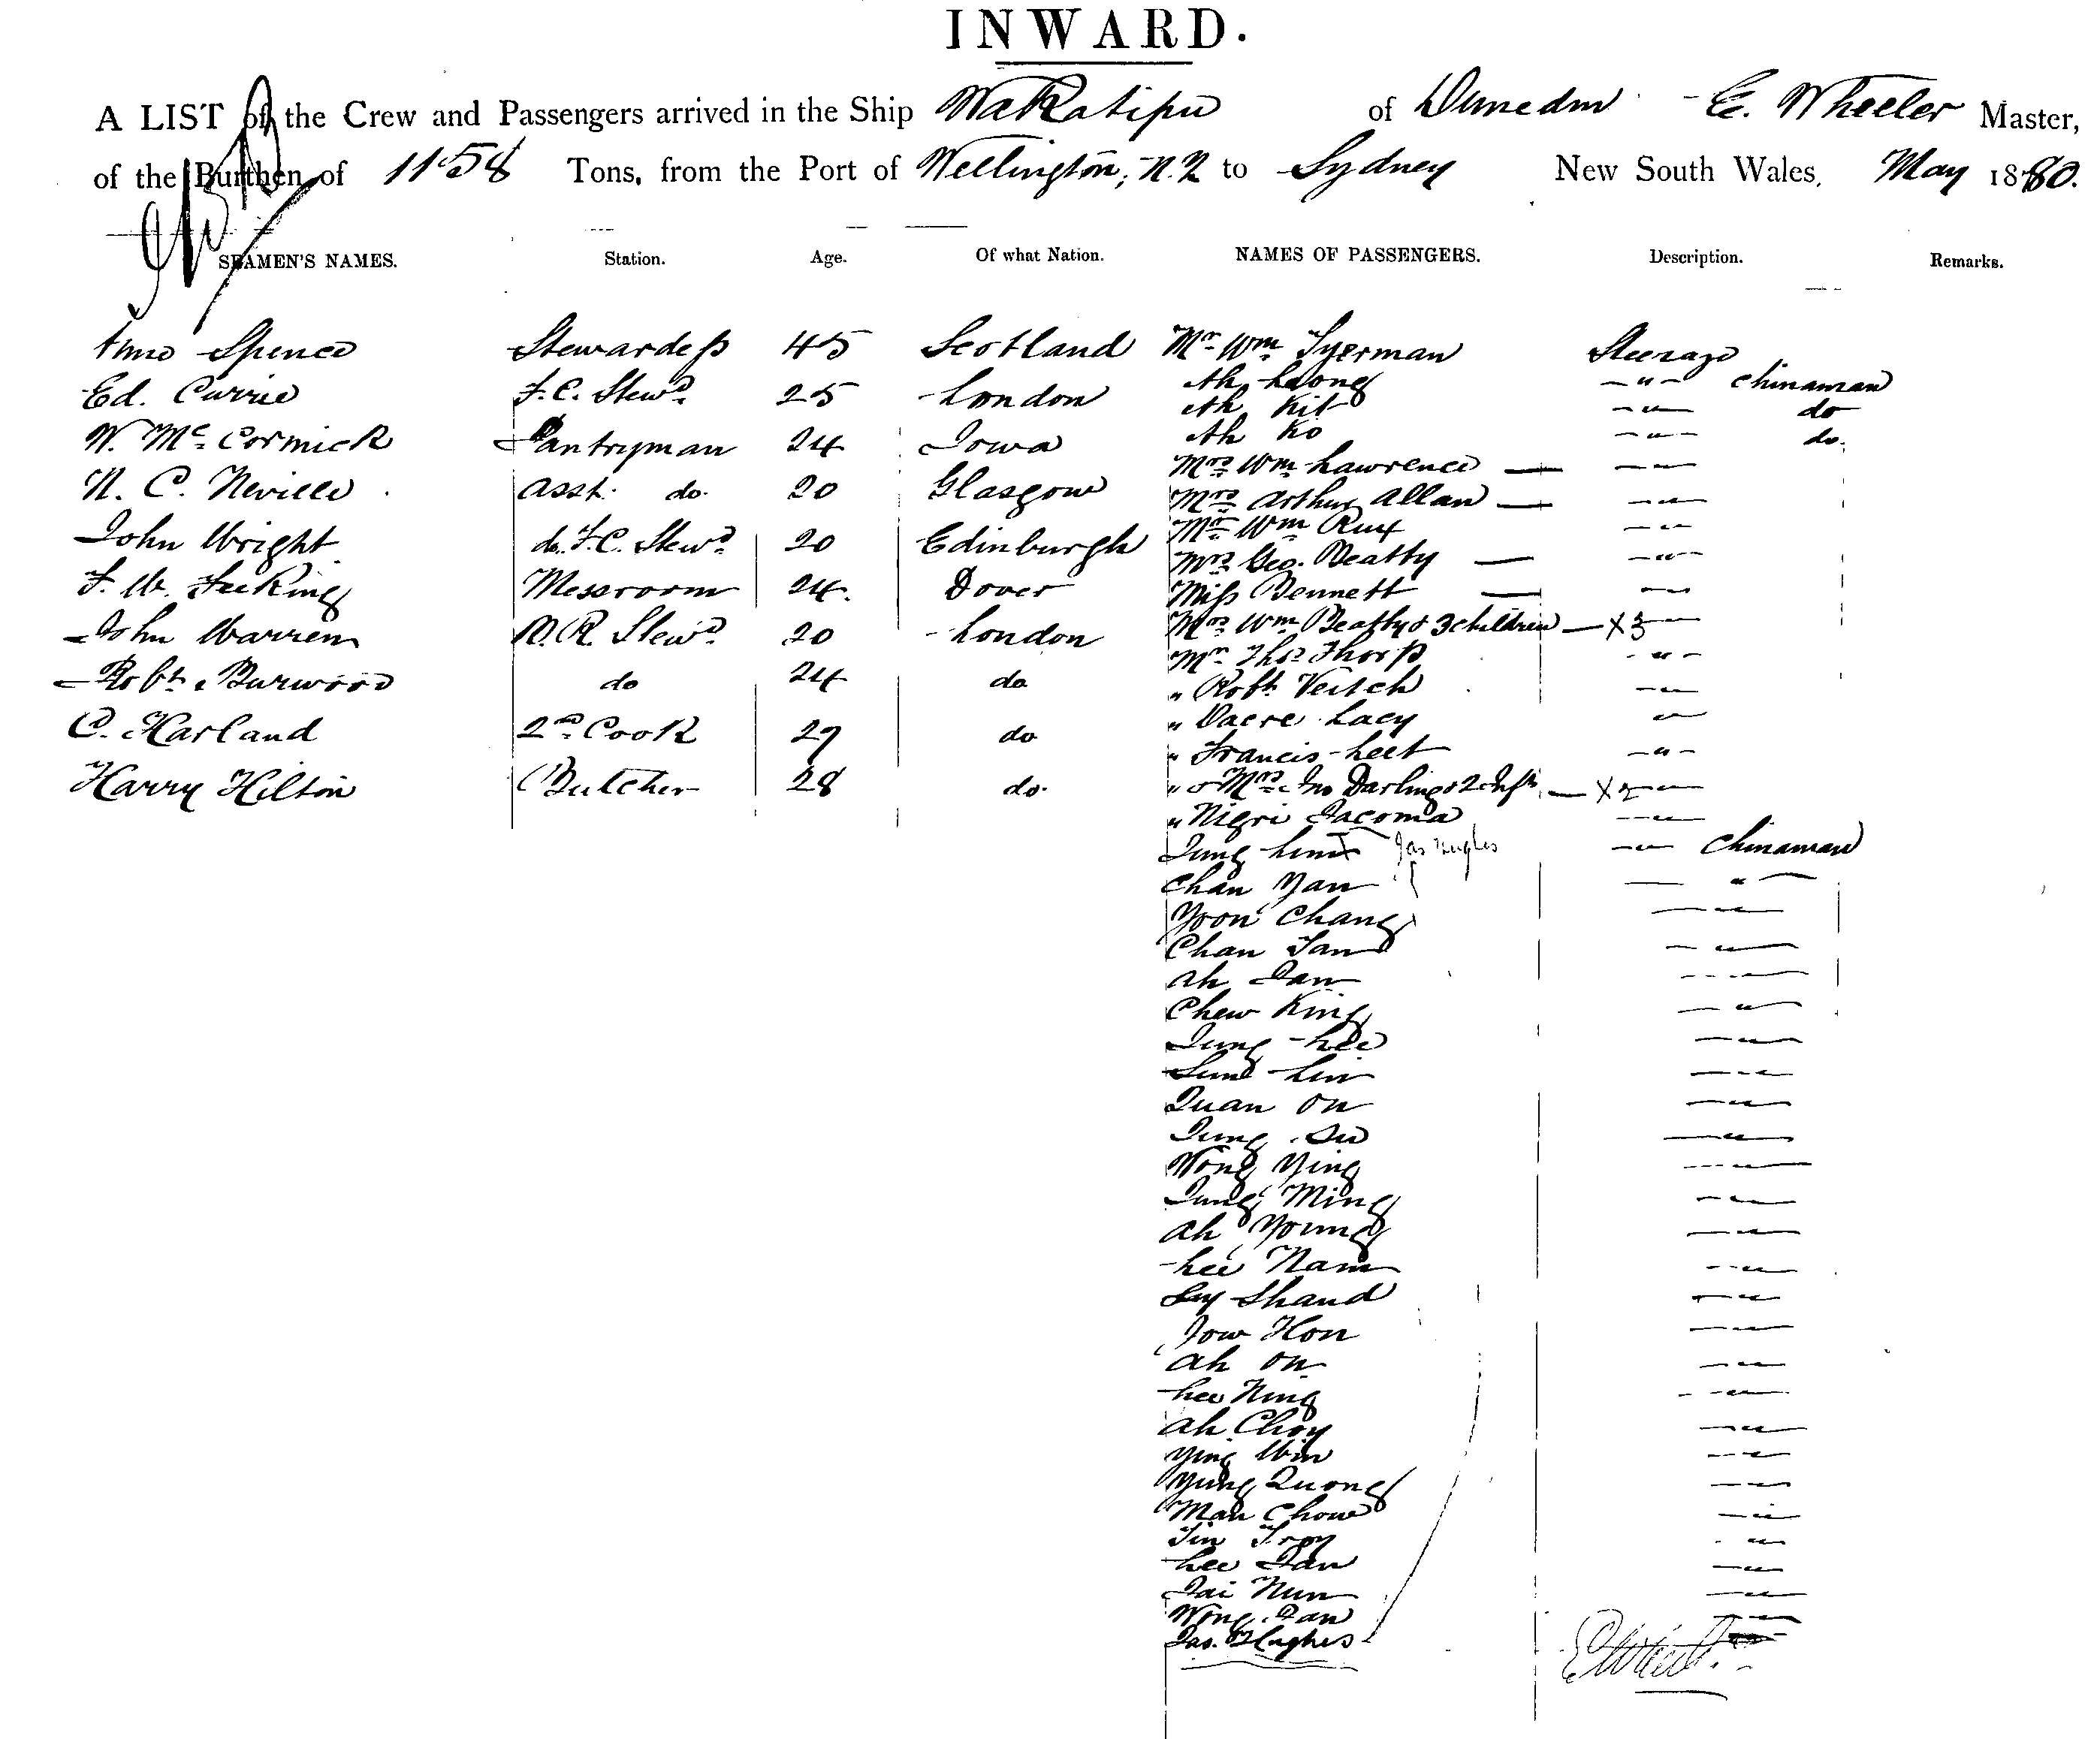 INWARD.
A LIST of the Crew and Passengers arrived in the Ship Wakatipu of Dunedin E. Wheeler Master,
of the Burthen of 1158 Tons, from the Port of Wellington, N.Z to Sydney New South Wales, May 1880.
SEAMEN'S NAMES. Station. Age. Of what Nation. NAMES OF PASSENGERS. Description. Remarks.
Anne Spence Stewardess 45 Scotland Mr Wm Tyerman Steerage
Ed. Currie F.C. Stewd. 25 London Ah Leong -"- Chinaman
Ah Kit -"- do
W. McCormick Pantryman 24 Iowa Ah Ko -"- do.
Mrs Wm Lawrence -"-
N. C. Neville asst. do. 20 Glasgow Mrs Arthur Allan -"-
Mr Wm -"-
John Wright do. F.C. Stewd. 20 Edinburgh Mrs Geo. Beatty -"-
F. W. Messroom 24. Dover Miss Bennett -"-
John Warren S.R. Stewd. 20 London Mrs Wm Beatty & 3 children X3 -"-
Mr Thos Thorp -"-
Robt. Burwood do 24 do " Robt Veitch -"-
C. Harland 2nd Cook 27 do " Dacre Lacy "
" Francis Leet -"-
Harry Hilton Butcher 28 do. " & Mrs Jno Darling & 2 Infts X2 -"-
" Nigri Jacoma -"-
Jas Hughes -"- Chinaman
Chan Yan "
Yoon Chang -"-
Chan Tan -"-
Ah Tan -"-
Chew King -"-
Tung Lee -"-
Lin -"-
Quan On -"-
Tung Su -"-
Wong Ying -"-
Tung Ming -"-
Ah Young -"-
Lee Nam -"-
Shand -"-
Hon -"-
Ah On -"-
Lee Ning -"-
Ah Choy -"-
Ying Win -"-
Yung Quong -"-
Mah Chow -"-
Tin Troy "
Lee Tan -"-
Tai Nun -"-
Wong Tan -"-
Jas. Hughes
E Wheeler